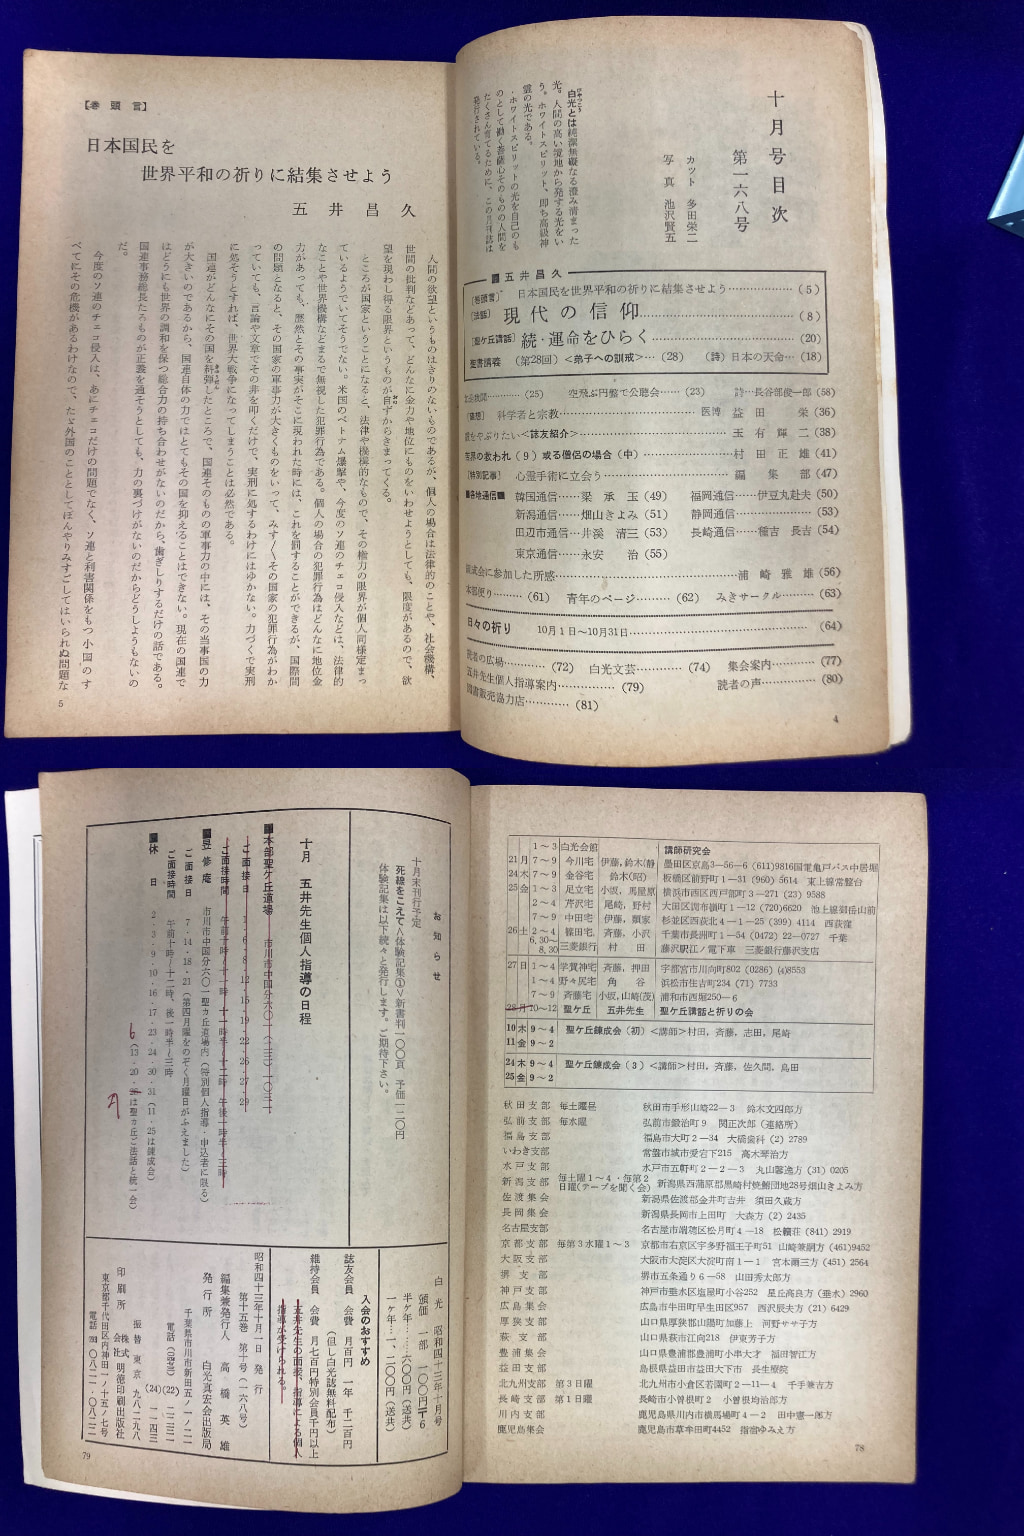 十月号目次
第一六八号
カット 多田栄二
写真 池沢賢五
白光とは純潔無礙なる澄み清まった
光。人間の高い境地から発する光をい
う。ホワイトスピリット、即ち高級神
霊の光である。
・ホワイトスピリットの光を自己のも
のとして働く菩薩心そのものの人間を
たくさん育てるために、この月刊誌は
発行されている。
■五井昌久
[巻頭言] 日本国民を世界平和の祈りに結集させよう………………(5)
[法話] 現代の信仰………………(8)
[聖ケ丘講話] 続・運命をひらく………………(20)
聖書講義 (第28回) <弟子への訓戒>…(28) (詩)日本の天命…(18)
………(25) 空飛ぶ円盤で公聴会……(23) 詩…長谷部俊一郎(58)
科学者と宗教………………医博 益田 栄(36)
をやぶりたい<誌友紹介>………………玉有輝二(38)
世界の救われ(9)或る僧侶の場合(中)………………村田正雄(41)
[特別記事] 心霊手術に立会う………………編集部(47)
■各地通信■ 韓国通信……梁 承玉(49) 福岡通信……伊豆丸赴夫(50)
新潟通信……畑山きよみ(51) 静岡通信………………(53)
田辺市通信…井溪 清三(53) 長崎通信……種吉 長吉(54)
東京通信……永安 治(55)
錬成会に参加した所感………………浦崎雅雄(56)
本部便り………(61) 青年のページ………(62) みきサークル………(63)
日々の祈り 10月1日〜10月31日………………(64)
読者の広場…………(72) 白光文芸…………(74) 集会案内…………(77)
五井先生個人指導案内……………(79) 読者の声……………(80)
図書販売協力店…………(81)
4
【巻頭言】
日本国民を
世界平和の祈りに結集させよう
五井昌久
人間の欲望というものはきりのないものであるが、個人の場合は法律的のことや、社会機構、
世間の批判などあって、どんなに金力や地位にものをいわせようとしても、限度があるので、欲
望を現わし得る限界というものが自ずからきまってくる。
ところが国家ということになると、法律や機構的なもので、その権力の限界が個人同様定まっ
ているようでいてそうでない。米国のベトナム爆撃や、今度のソ連のチェコ侵入などは、法律的
なことや世界機構などまるで無視した犯罪行為である。個人の場合の犯罪行為はどんなに地位金
力があっても、歴然とその事実がそこに現われた時には、これを罰することができるが、国際間
の問題となると、その国家の軍事力が大きくものをいって、みす/\その国家の犯罪行為がわか
っていても、言論や文章でその非を叩くだけで、実刑に処するわけにはゆかない。力づくで実刑
に処そうとすれば、世界大戦争になってしまうことは必然である。
国連がどんなにその国を糾弾したところで、国連そのものの軍事力の中には、その当事国の力
が大きいのであるから、国連自体の力ではとてもその国を抑えることはできない。現在の国連で
はどうにも世界の調和を保つ総合力の持ち合わせがないのだから、歯ぎしりするだけの話である。
国連事務総長たちものが正義を通そうとしても、力の裏づけがないのだからどうしようもないの
だ。
今度のソ連のチェコ侵入は、あにチェコだけの問題でなく、ソ連と利害関係をもつ小国のす
べてにその危機があるわけなので、たゞ外国のこととしてぼんやりみすごしてはいられぬ問題な
5
1〜3 白光会館 講師研究会
21月 7〜9 今川宅 伊藤,鈴木(静) 墨田区京島3—56—6 (611)9816国電亀戸バス中居堀
24木 7〜9 金谷宅 鈴木(昭) 板橋区前野町1—31 (960) 5614 東上線常盤台
25金 1〜3 足立宅 小坂,馬屋原 横浜市西区西戸部町3—271 (23) 9588
2〜4 芹沢宅 尾崎,野村 大田区調布嶺町1—12 (720)6620 池上線御岳山前
7〜9 中田宅 伊藤,瀬家 杉並区西荻北4—1—25 (399) 4114 西荻窪
26土 2〜4 篠田宅 斉藤,小沢 千葉市長洲町1—34 (0472) 22—0727 千葉
6.30〜8.30 三菱銀行 村田 藤沢駅江ノ電下車 三菱銀行藤沢支店
27日 1〜4 学賀神宅 斉藤,押田 宇都宮市川向町802 (0286) (4)8553
1〜4 野々尻宅 角谷 浜松市住吉町234 (71) 7733
7〜9 斉藤宅 小坂,山崎(茂) 浦和市西堀250—6
28月 10〜12 聖ケ丘 五井先生 聖ケ丘講話と祈りの会
10木 9〜4 聖ケ丘錬成会(初)<講師>村田,斉藤,志田,尾崎
11金 9〜2
24木 9〜4 聖ケ丘錬成会(3)<講師>村田,斉藤,佐久間,島田
25金 9〜2
秋田支部 毎土曜昼 秋田市手形山崎22—3 鈴木文四郎方
弘前支部 毎水曜 弘前市鍛治町9 関正次郎(連絡所)
福島支部 福島市大町2—34 大橋歯科(2)2789
いわき支部 常盤市城市愛宕下215 高木琴治方
水戸支部 水戸市五軒町2—2—3 丸山馨逸方(31)0205
新潟支部 毎土曜1〜4・毎第2日曜(テープを聞く会) 新潟県西蒲原郡黒崎村焼鮒団地28号畑山きよみ方
佐渡集会 新潟県佐渡郡金井町吉井 須田久蔵方
長岡集会 新潟県長岡市上田町 大森方(2)2435
名古屋支部 名古屋市瑞穂区松月町4—18 松籟荘(841)2919
京都支部 毎第3水曜1〜3 京都市右京区宇多野福王子町51 山崎兼嗣方(461)9452
大阪支部 大阪市大淀区大淀町南1—1 宮本爾三方(451)2564
堺支部 堺市五条通り6—58 山田秀太郎方
神戸支部 神戸市垂水区塩屋町小谷252 星丘高良方(垂水)2960
広島集会 広島市牛田町早生田区957 西沢辰夫方(21)6429
厚狭支部 山口県厚狭郡山陽町加藤上 河野ササ子方
萩支部 山口県萩市江向218 伊東芳子方
豊浦集会 山口県豊浦郡豊浦町小串大才 福田智江方
益田支部 島根県益田市益田大下市 長生療院
北九州支部 第3日曜 北九州市小倉区若園町2—11—4 千手兼吉方
長崎支部 第1日曜 長崎市小曽根町2 小曽根均治郎方
川内支部 鹿児島県川内市横馬場町4—2 田中憲一郎方
鹿児島集会 鹿児島市草牟田町4452 指宿ゆみえ方
78
お知らせ
十月末刊行予定
死線をこえて<体験記集①>新書判一〇〇頁 予価一二〇円
体験記集は以下続々と発行します。ご期待下さい。
十月 五井先生個人指導の日程
■本部聖ケ丘道場 市川市中国分六〇一(七三)一〇三一
ご面接日 1・6・8・12・15・19・22・26・27・29
ご面接時間 午前十時〜十一時、十一時半〜十二時 午後一時半〜三時
■昱修庵 市川市中国分六〇一聖ヵ丘道場内(特別個人指導・申込者に限る)
ご面接日 7・14・18・21(第四月曜をのぞく月曜日がふえました)
ご面接時間 午前十時〜十二時、後一時半〜三時
■休日 2・3・9・10・16・17・23・24・30・31(11・25は錬成会)
6(13・20・は聖ヵ丘ご法話と統一会)
白光 昭和四十三年十月号
頒価 一部 一〇〇円〒6
半ケ年……六〇〇円(送共)
一ケ年…一、二〇〇円(送共)
入会のおすすめ
誌友会員 会費 月百円 一年 千二百円
(但し白光誌無料配布)
維持会員 会費 月七百円特別会員千円以上
五井先生の面接、指導による個人
指導が受けられる。
昭和四十三年十月一日発行
第十五巻 第十号(一六八号)
編集兼発行人 高橋英雄
発行所 白光真宏会出版局
千葉県市川市新田五ノ一ノ二一
振替東京 九八二九八
印刷所 株式会社 明徳印刷出版社
東京都千代田区内神田一ノ十五ノ七号
79